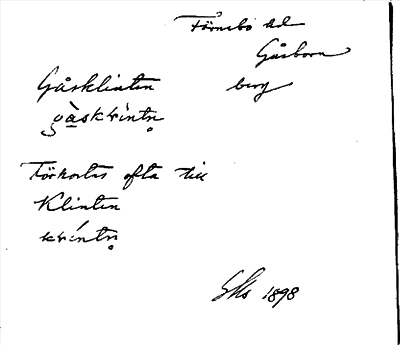 Färnebo hd
Gåsborn
Gåsklinten berg
gàskḷìntṇ
Förkortas ofta till
Klinten
kḷíntṇ
Sks 1898